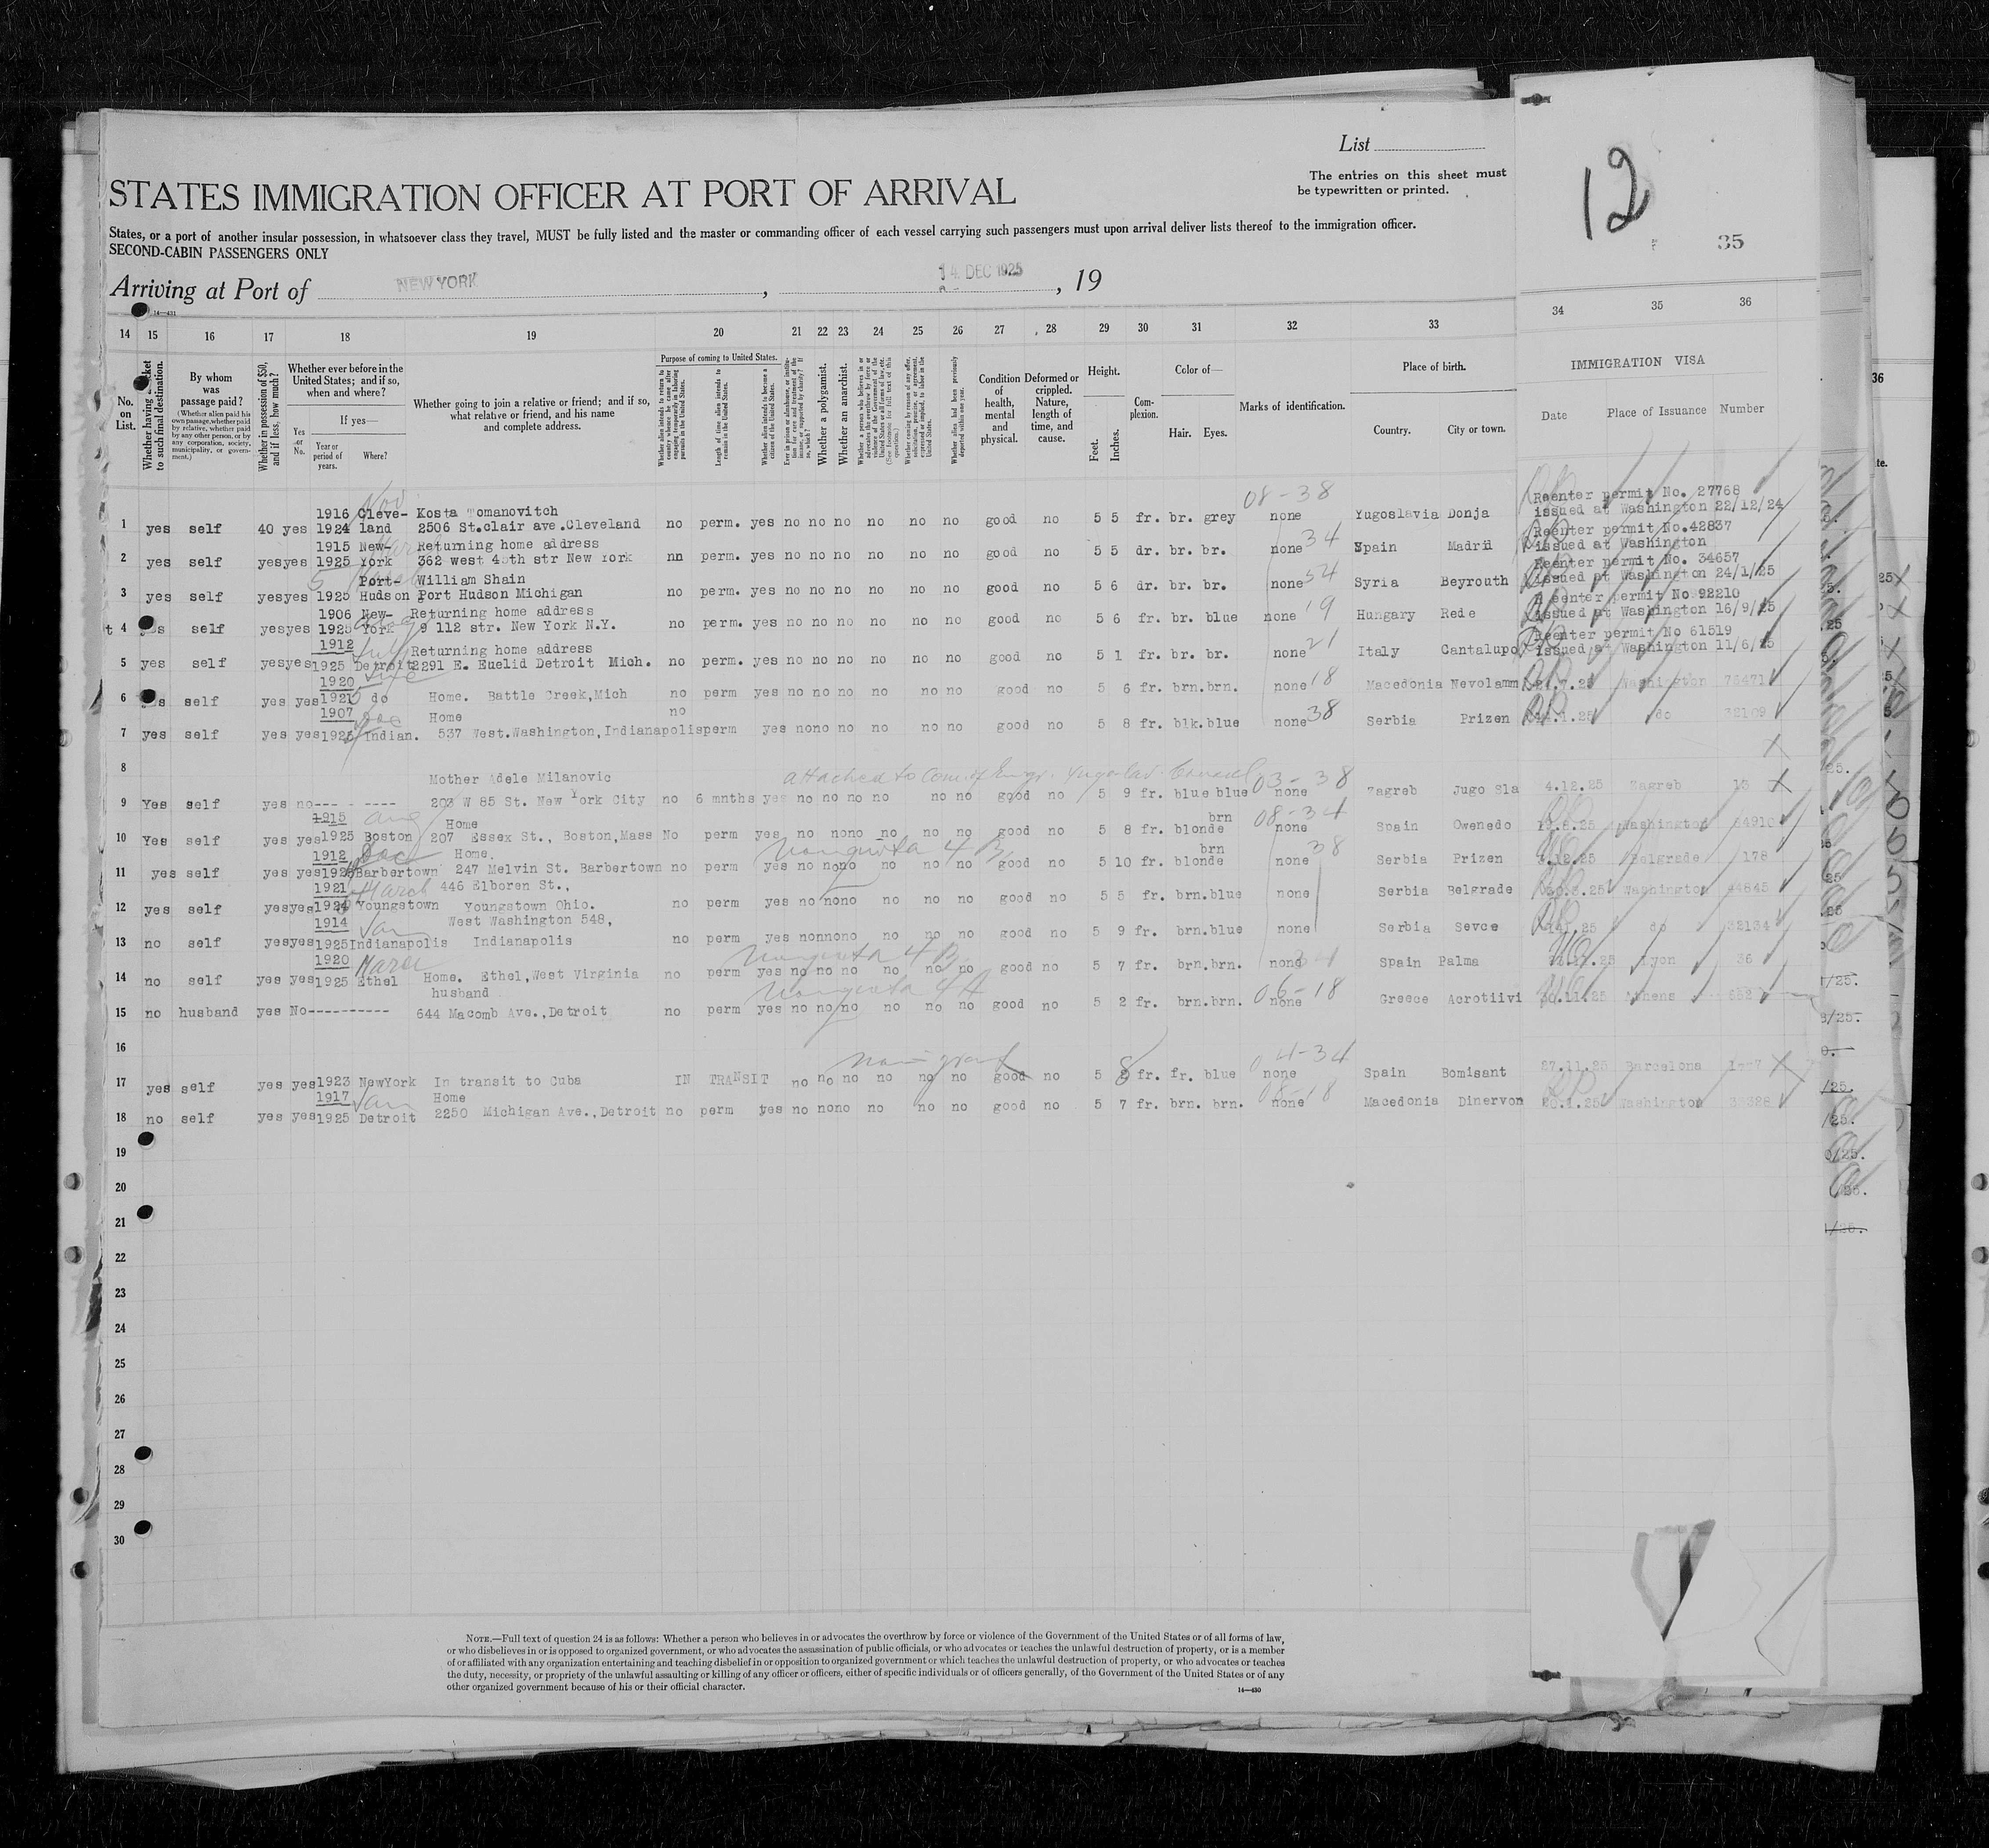 List
The entries on this sheet must
be typewritten or printed.
12
35
STATES IMMIGRATION OFFICER AT PORT OF ARRIVAL
States, or a port of another insular possession, in whatsoever class they travel, MUST be fully listed and the master or commanding officer of each vessel carrying such passengers must upon arrival deliver lists thereof to the immigration officer.
SECOND-CABIN PASSENGERS ONLY
Arriving at Port of NEW YORK , 14 DEC 1925 , 19
14—431
14 15 16 17 18 19 20 21 22 23 24 25 26 27 28 29 30 31 32 33 34 35 36
No. on List.
to such final destination.
By whom was passage paid?
(Whether alien paid his own passage, whether paid by relative, whether paid by any other person, or by any corporation, society, municipality, or government.)
Whether in possession of $50, and if less, how much?
Whether ever before in the United States; and if so, when and where?
If yes—
Yes or No.
Year or period of years.
Where?
Whether going to join a relative or friend; and if so, what relative or friend, and his name and complete address.
Purpose of coming to United States.
Length of time alien intends to remain in the United States.
Whether alien intends to become a citizen of the United States.
Whether a polygamist.
Whether an anarchist.
Condition of health, mental and physical.
Deformed or crippled. Nature, length of time, and cause.
Height.
Feet. Inches.
Complexion.
Color of—
Hair. Eyes.
Marks of identification.
Place of birth.
Country. City or town.
IMMIGRATION VISA
Date Place of Issuance Number
08-38
1916 Cleve- Kosta Tomanovitch Reenter permit No. 27768
1 yes self 40 yes 1924 land 2506 St.clair ave.Cleveland no perm. yes no no no no no no good no 5 5 fr. br. grey none Yugoslavia Donja issued at Washington 22/12/24
1915 New- Returning home address Reenter permit No.42837
2 yes self yes yes 1925 York 362 west 45th str New York nn perm. yes no no no no no no good no 5 5 dr. br. br. none 34 Spain Madrid issued at Washington
Port- William Shain Reenter permit No. 34657
3 yes self yes yes 1925 Hudson Port Hudson Michigan no perm. yes no no no no no no good no 5 6 dr. br. br. none Syria Beyrouth issued at Washington 24/1/25
1906 New- Returning home address Reenter permit No 92210
4 yes self yes yes 1925 York 9 112 str. New York N.Y. no perm. yes no no no no no no good no 5 6 fr. br. blue none 19 Hungary Rede issued at Washington 16/9/25
1912 Returning home address Reenter permit No 61519
5 yes self yes yes 1925 Detroit 2291 E. Euclid Detroit Mich. no perm. yes no no no no no no good no 5 1 fr. br. br. none 21 Italy Cantalupo issued at Washington 11/6/25
1920
6 self yes yes do Home. Battle Creek,Mich no perm yes no no no no no no good no 5 6 fr. brn. brn. none 18 Macedonia Nevolamm Washington 76471
1907 Home no
7 yes self yes yes 1925 Indian. 537 West.Washington,Indianapolis perm yes no no no no no no good no 5 8 fr. blk. blue none 38 Serbia Prizen do
8
Mother Adele Milanovic 03-38
9 Yes self yes no--- - ---- 203 W 85 St. New York City no 6 mnths yes no no no no no no good no 5 9 fr. blue blue none Zagreb Jugo Sla 4.12.25 Zagreb 13
1915 Home brn 08-34
10 Yes self yes yes 1925 Boston 207 Essex St., Boston,Mass No perm yes no no no no no no good no 5 8 fr. blonde none Spain Owenedo Washington
1912 Dec Home. nonquota 4 B brn 38
11 yes self yes yes Barbertown 247 Melvin St. Barbertown no perm yes no no no no no no good no 5 10 fr. blonde none Serbia Prizen 4.12.25 Belgrade 178
1921 March 446 Elboren St.,
12 yes self yes yes 1924 Youngstown Youngstown Ohio. no perm yes no no no no no no good no 5 5 fr. brn. blue none Serbia Belgrade Washington
1914 Jan West Washington 548,
13 no self yes yes 1925 Indianapolis Indianapolis no perm yes no no no no no no good no 5 9 fr. brn. blue none Serbia Sevce do 32134
1920 March nonquota 4 B
14 no self yes yes 1925 Ethel Home. Ethel,West Virginia no perm yes no no no no no no good no 5 7 fr. brn. brn. none Spain Palma Lyon 36
husband nonquota 4 A 06-18
15 no husband yes No---------- 644 Macomb Ave.,Detroit no perm yes no no no no no no good no 5 2 fr. brn. brn. none Greece Acrotiivi Athens
16
04-34
17 yes self yes yes 1923 NewYork In transit to Cuba IN TRANSIT no no no no no no good no 5 8 fr. fr. blue none Spain Bomisant 27.11.25 Barcelona
1917 Jan Home 08-18
18 no self yes yes 1925 Detroit 2250 Michigan Ave.,Detroit no perm yes no no no no no no good no 5 7 fr. brn. brn. none Macedonia Dinervon Washington
19
20
21
22
23
24
25
26
27
28
29
30
NOTE.—Full text of question 24 is as follows: Whether a person who believes in or advocates the overthrow by force or violence of the Government of the United States or of all forms of law,
or who disbelieves in or is opposed to organized government, or who advocates the assassination of public officials, or who advocates or teaches the unlawful destruction of property, or is a member
of or affiliated with any organization entertaining and teaching disbelief in or opposition to organized government or which teaches the unlawful destruction of property, or who advocates or teaches
the duty, necessity, or propriety of the unlawful assaulting or killing of any officer or officers, either of specific individuals or of officers generally, of the Government of the United States or of any
other organized government because of his or their official character.
14—430